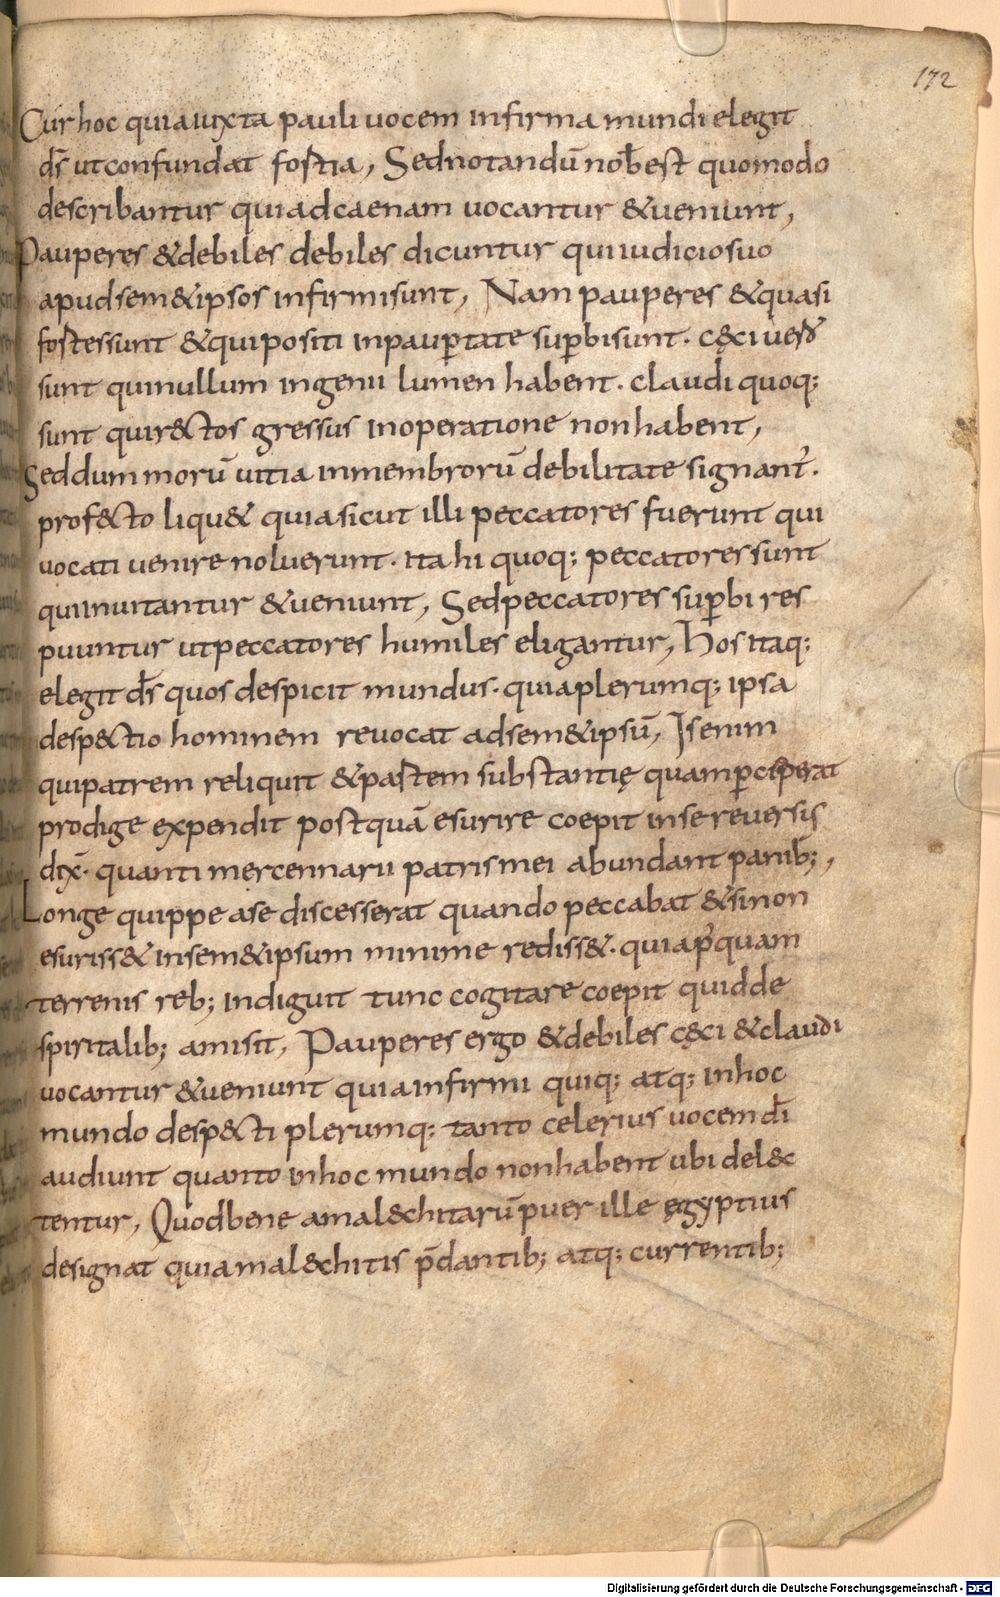 172
Cur hoc quia iuxta pauli uocem infirma mundi elegit
dꝭ ut confundat fortia, Sed notandū nob̄ est quomodo
describantur qui ad caenam uocantur & ueniunt,
Pauperes & debiles debiles dicuntur qui iudicio suo
apud sem&ipsos infirmi sunt, Nam pauperes & quasi
fortes sunt & qui positi in paup̄tate sup̄bi sunt. cęci uero
sunt qui nullum ingenii lumen habent. claudi quoq;
sunt qui r&ctos gressus in operatione non habent,
Sed dum morū uitia in membrorū debilitate signant̄.
prof&cto liqu& quia sicut illi peccatores fuerunt qui
uocati uenire noluerunt. ita hi quoq; peccatores sunt
qui inuitantur & ueniunt, Sed peccatores sup̄bi res
puuntur ut peccatores humiles eligantur, Hos itaq;
elegit d̄s quos despicit mundus. quia plerumq; ipsa
desp&ctio hominem reuocat ad sem&ipsū, Is enim
qui patrem reliquit & partem substantię quam p̄ceperat
prodige expendit postquā esurire coepit in se reuersis
dix̄. quanti mercennarii patris mei abundant panib;,
Longe quippe a se discesserat quando peccabat & si non
esuriss& in sem&ipsum minime rediss&. quia p̄quam
terrenis reb; indiguit tunc cogitare coepit quid de
spiritalib; amisit, Pauperes ergo & debiles cęci & claudi
uocantur & ueniunt quia infirmi quiq; atq; in hoc
mundo desp&cti plerumq; tanto celerius uocem dī
audiunt quanto in hoc mundo non habent ubi del&c
tentur, Quod bene amal&chitarū puer ille ęgyptius
designat qui amal&chitis p̄dantib; atq; currentib;
Digitalisierung gefördert durch die Deutsche Forschungsgemeinschaft - DFG